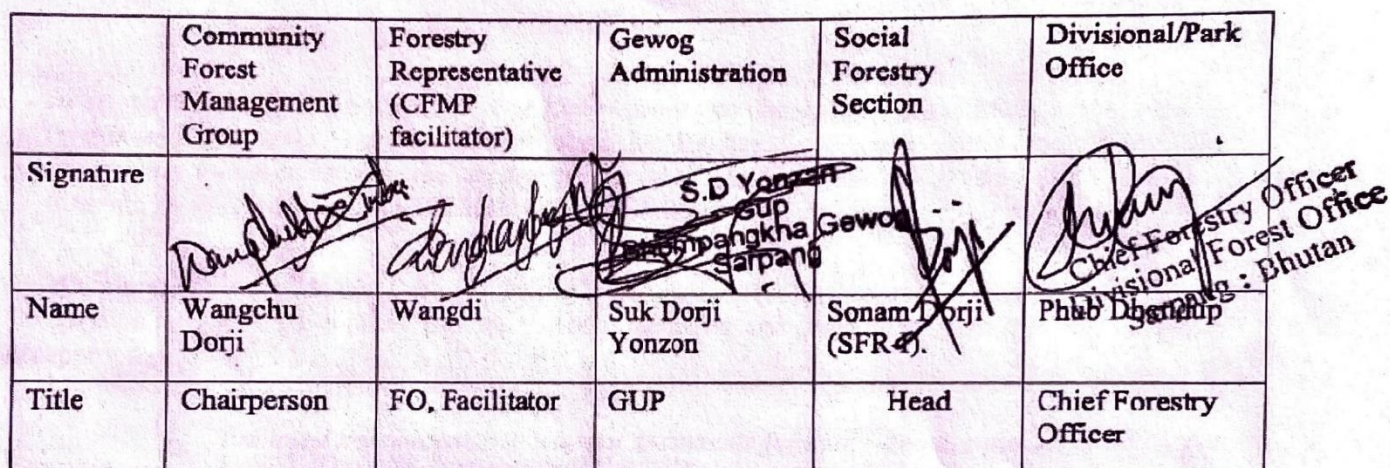 Community Forest Management Group
Forestry Representative (CFMP facilitator)
Gewog Administration
Social Forestry Section
Divisional/Park Office
Signature
S.D Yonzan
Gup
Gewog
Sarpang
Dorji
Chief Forestry Officer
Divisional Forest Office
Sarpang : Bhutan
Name
Wangchu Dorji
Wangdi
Suk Dorji Yonzon
Sonam Dorji (SFR-I).
Phub Dhendup
Title
Chairperson
FO, Facilitator
GUP
Head
Chief Forestry Officer